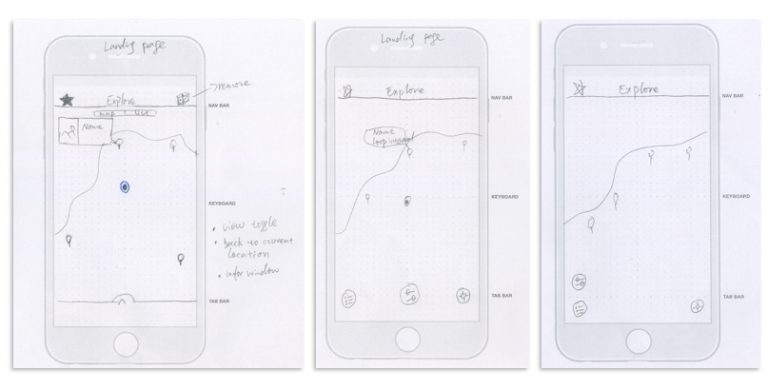 Landing page
→ remove
Explore
NAV BAR
map
list
Name
KEYBOARD
• view toggle
• back to current
location
• infor window
TAB BAR
Landing page
Explore
NAV BAR
Name
KEYBOARD
TAB BAR
Explore
NAV BAR
KEYBOARD
TAB BAR